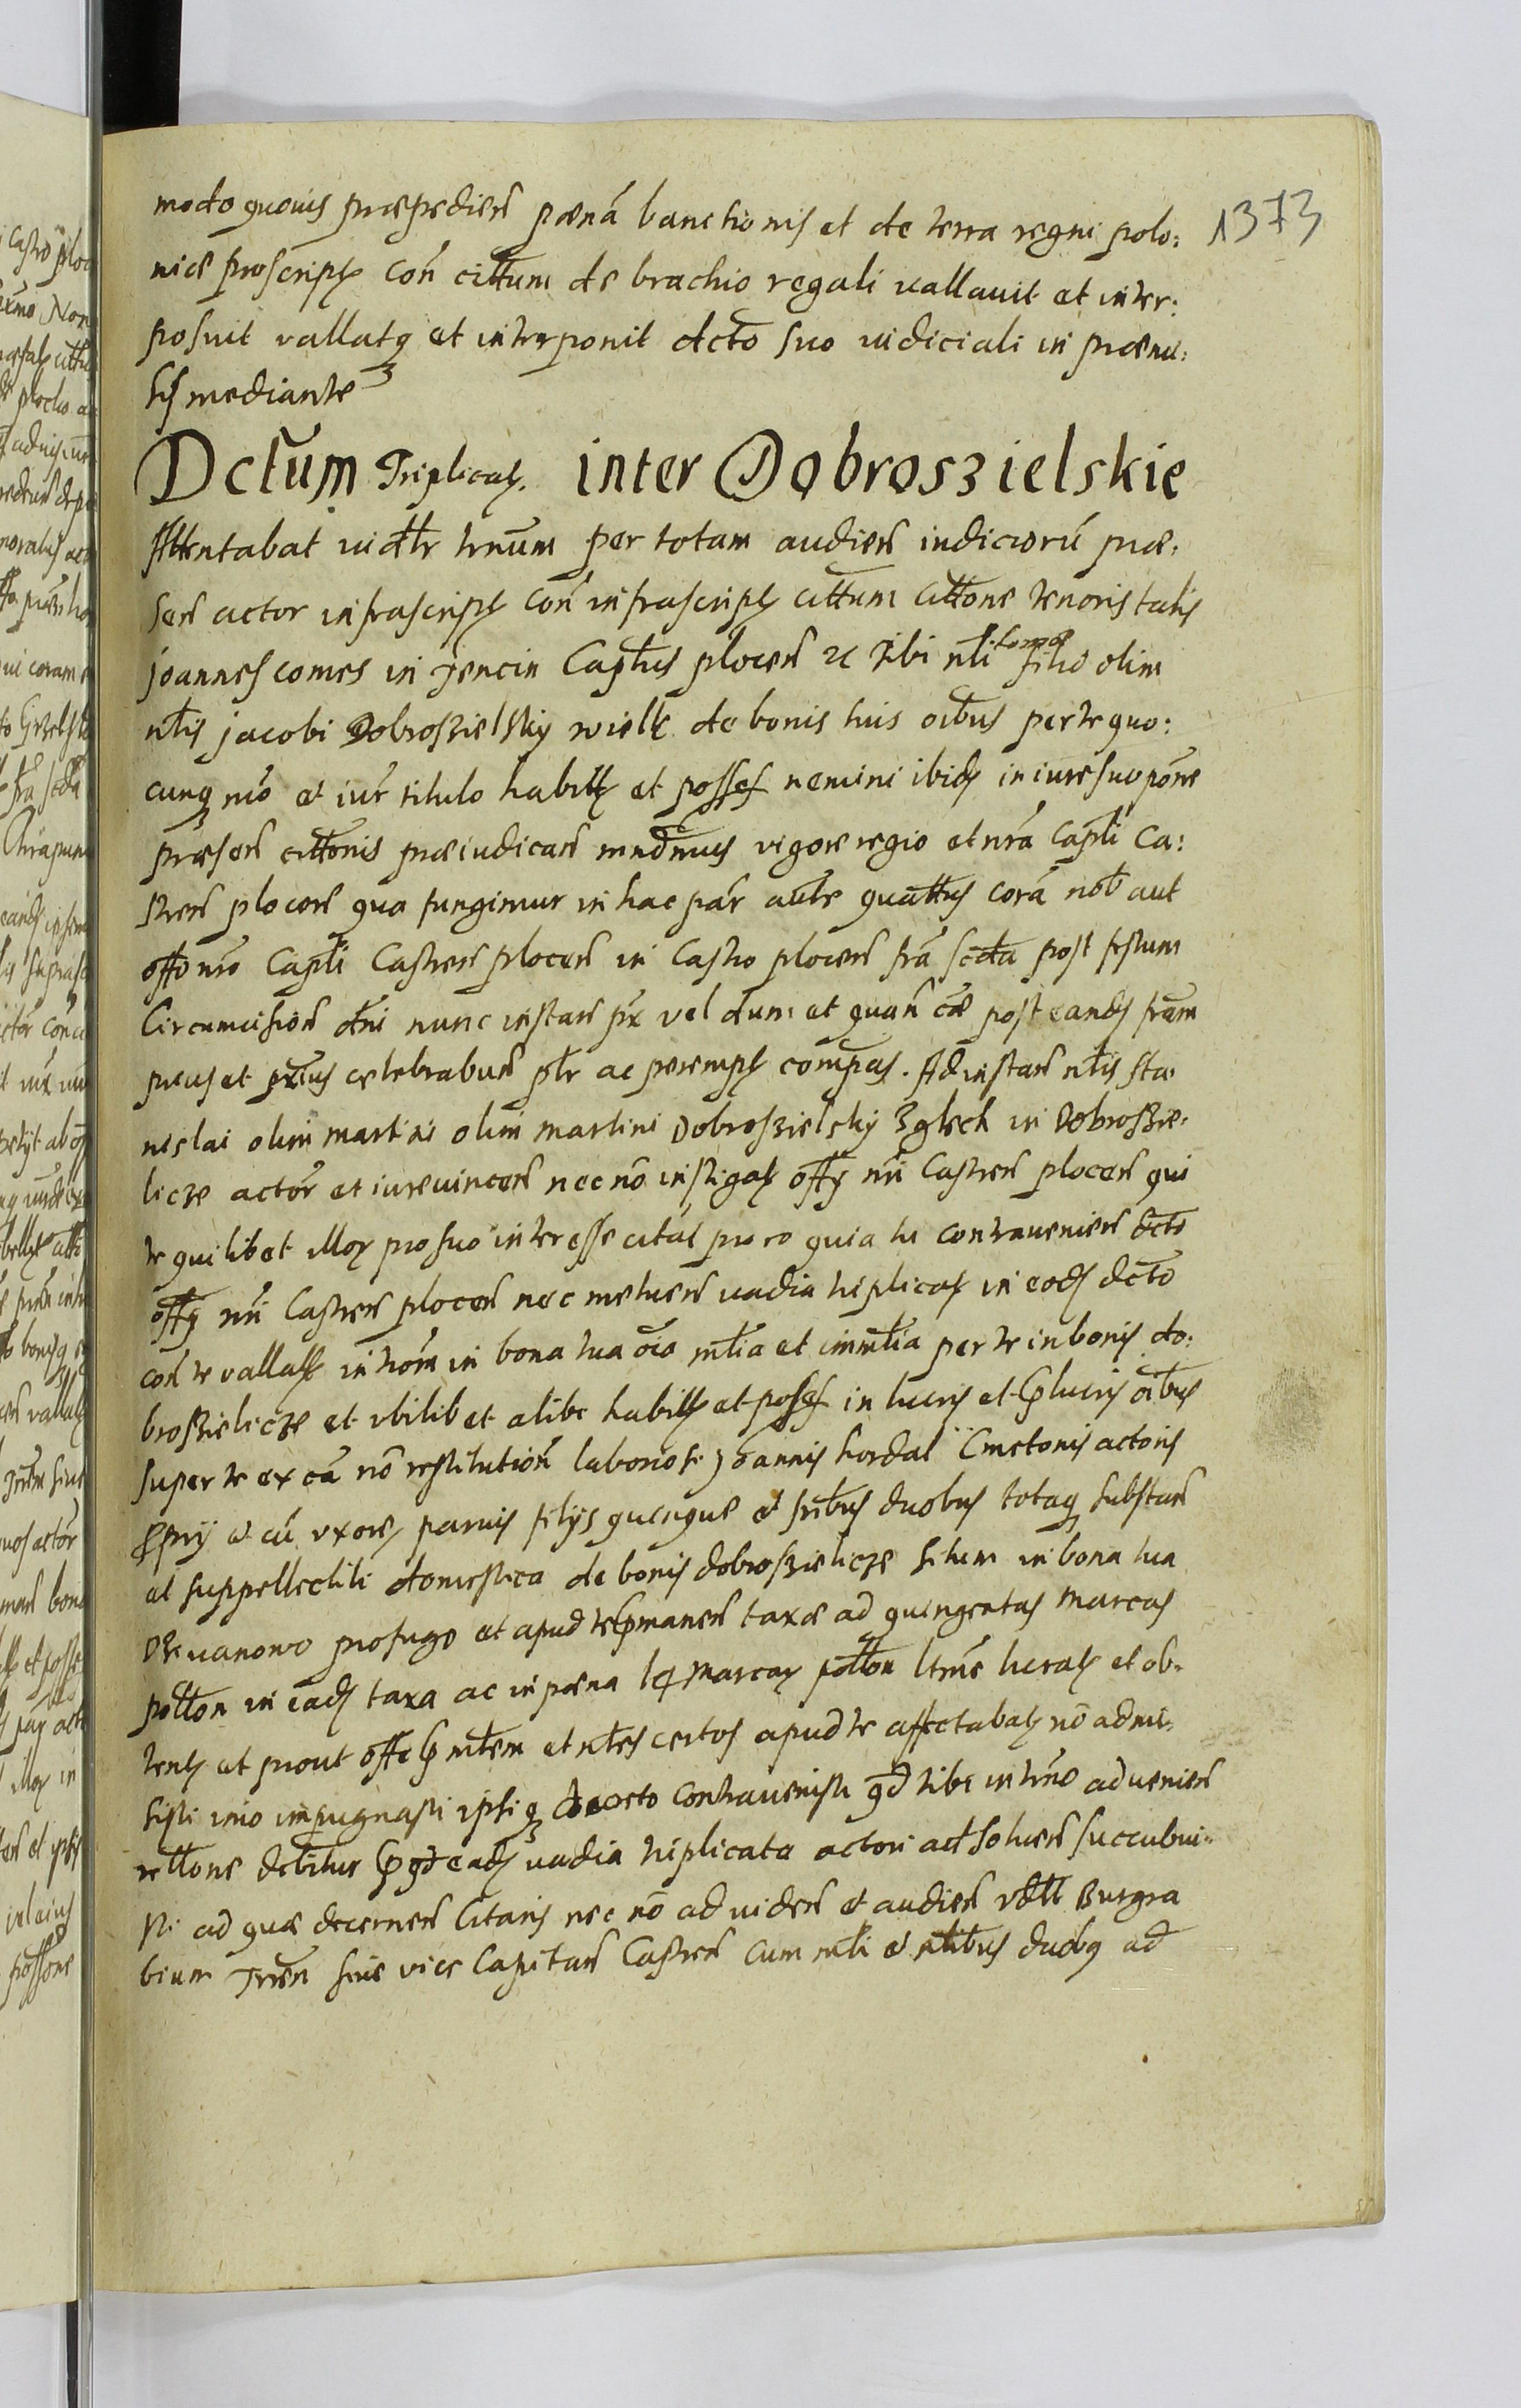 modo quovis præpedien pœnã banctionis et de terra regni polo: 1373
niæ proscript con cittum de brachio regali vallavit et inter:
posuit vallatq et interponit dcto suo iudiciali in præmi:
sis mediante
Dctum Triplicat. inter Dobroszielskie
Attentabat vidttr trnum per totam audien iudiciorũ præ:
sen actor infrascript con infrascript cittum cittone tenoris talis
joannes comes in Tencin Captus plocen zc Tibi nli filio olim
nlis jacobi Dobroszielsky wielk de bonis tuis oibus per te quo:
cunq mõ et iur titulo habitt et posses nemini ibid in iure suo pone
præsen cittonis præiudican mndmus vigore regio et nra Capli Ca:
stren plocen qua fungimur in hac par aute quattus corã nob aut
offo nro Capli Castren plocen in Castro plocen fra scda post festum
Circumcision dni nunc instan px vel dum et quan cæ post eand fram
prius et pxius celebrabun ptr ac perempt compas. Ad instan nlis sta
nislai olim martini olim martini Dobroszielsky Zglech in Dobroszie-
licze actor et iurevincen nec nõ instigat offy nri Castren plocen qui
te quilibet illor pro suo interesse citat pro eo quia tu contravenien dcto
offy nri Castren plocen nec metuen vadia triplicat in eod dcto
con te vallatt introm in bona tua oia mlia et immlia per te in bonis do:
broszielicze et ubilibet alibi habitt et posses in lucris et plucris oibus
super te ex cã nõ restitution laboriosi Joannis kordal Cmetonis actoris
ppry et cũ uxore parvis filys quinque et fribus duobus totaq substan
et suppellectili domestica de bonis dobroszielicze situm in bona tua
profugo et apud te pmanen taxæ ad quingentas marcas
potton in ead taxa ac in pœna 14 marcar potton ltrme lucrat et ob-
tent et prout offe p mlem et nles certos apud te affectabat nõ admi-
sisti imo impugnasti ipsiq decreto contravenisti qd tibi in trno advenien
rettone debitur p qd ead vadia triplicata actori ad solven succubui-
sti ad quæ decernen Citaris nec nõ ad viden et audien vdtt Burgra
bium Trren sive vice Capitan Castren cum mli et nlibus duobq ad